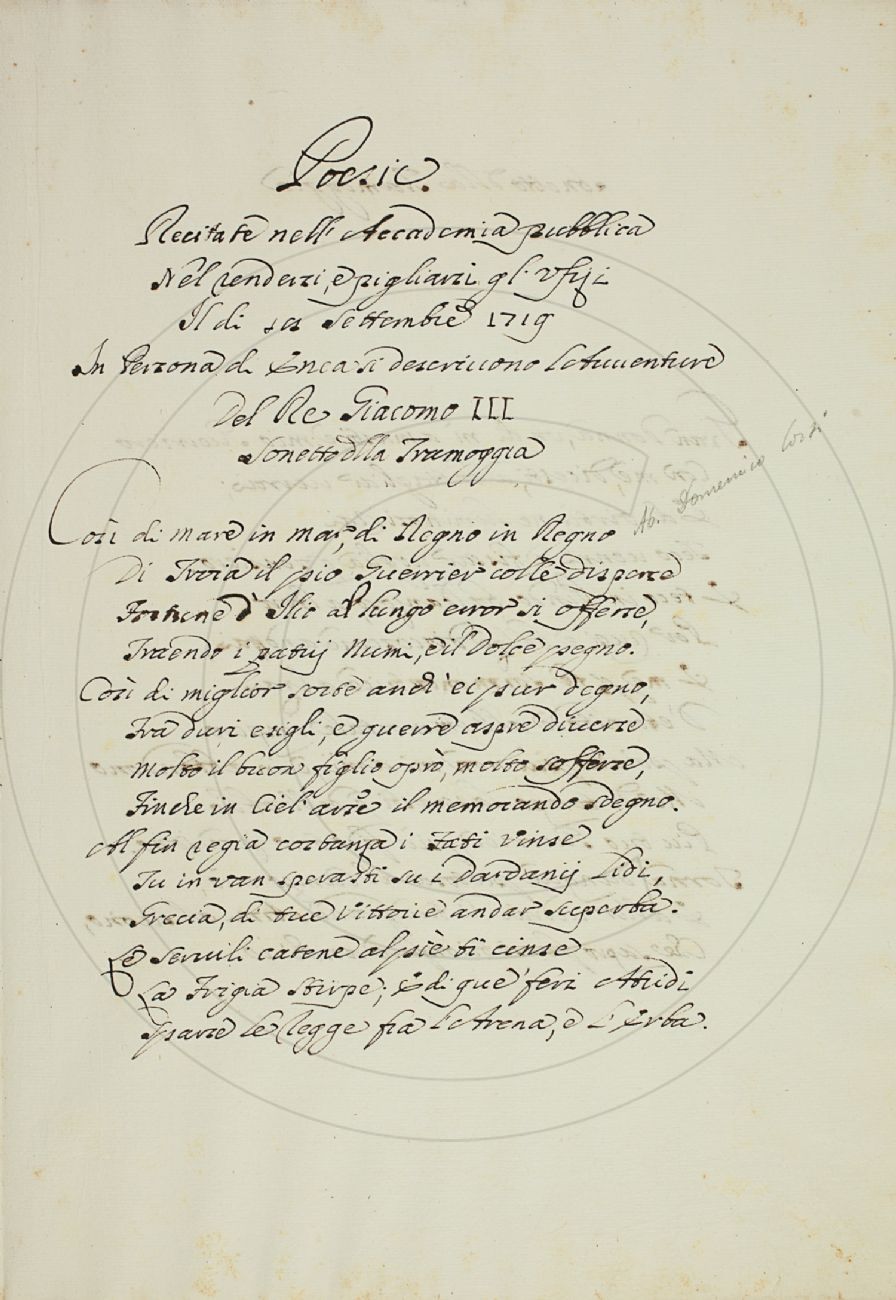 Poesie.
Recitate nell' Accademia pubblica
Nel rendersi, e pigliarsi gl' Vfizj
Il di Settembre 1719
In Persona di Enea si descriuono le Auuenture
Del Re Giacomo III
Sonetto dlla Tramoggia
Ab. Domenico
Così di mare in mar, di Regno in Regno
Di Troia il pio Guerrier colle disperse
Fortune d' Ilio al lungo error si offerse,
Traendo i patrij Numi, e il dolce pegno.
Così di miglior sorte anch' ei pur degno,
Tra duri esigli, e guerre aspre diuerse
Molto il buon figlio oprò, molto sofferse,
Finche in Ciel' arse il memorando sdegno.
Al fin regia costanza i Fati vinse.
Tu in van sperasti su i Dardanij Lidi,
Grecia, di tue Vittorie andar superba.
Le seruili catene al piè ti cinse
La Frigia stirpe; E di que' feri Atridi
Sparse le legge fia l'Arena, e l'Erba.